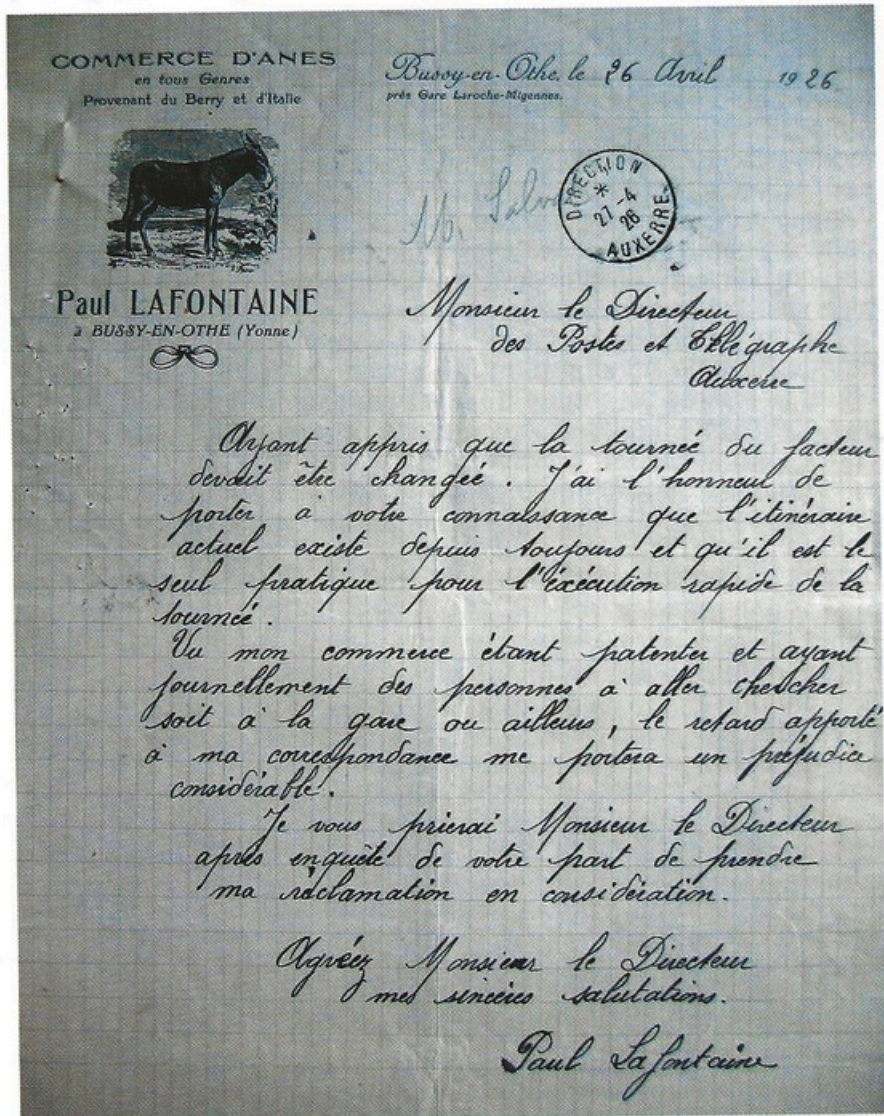 COMMERCE D'ANES
en tous Genres
Provenant du Berry et d'Italie
Bussy-en-Othe, le 26 Avril 1926
près Gare Laroche-Migennes.
DIRECTION
*
27-4
26
AUXERRE
M.
Paul LAFONTAINE
à BUSSY-EN-OTHE (Yonne)
Monsieur le Directeur
des Postes et Télégraphe
Auxerre
Ayant appris que la tournée du facteur
devait être changée. J'ai l'honneur de
porter à votre connaissance que l'itinéraire
actuel existe depuis toujours et qu'il est le
seul pratique pour l'éxécution rapide de la
tournée.
Vu mon commerce étant patenter et ayant
journellement des personnes à aller chercher
soit à la gare ou ailleurs, le retard apporté
à ma correspondance me portera un préjudice
considérable.
Je vous prierai Monsieur le Directeur
après enquète de votre part de prendre
ma réclamation en considération.
Agréez Monsieur le Directeur
mes sincères salutations.
Paul Lafontaine